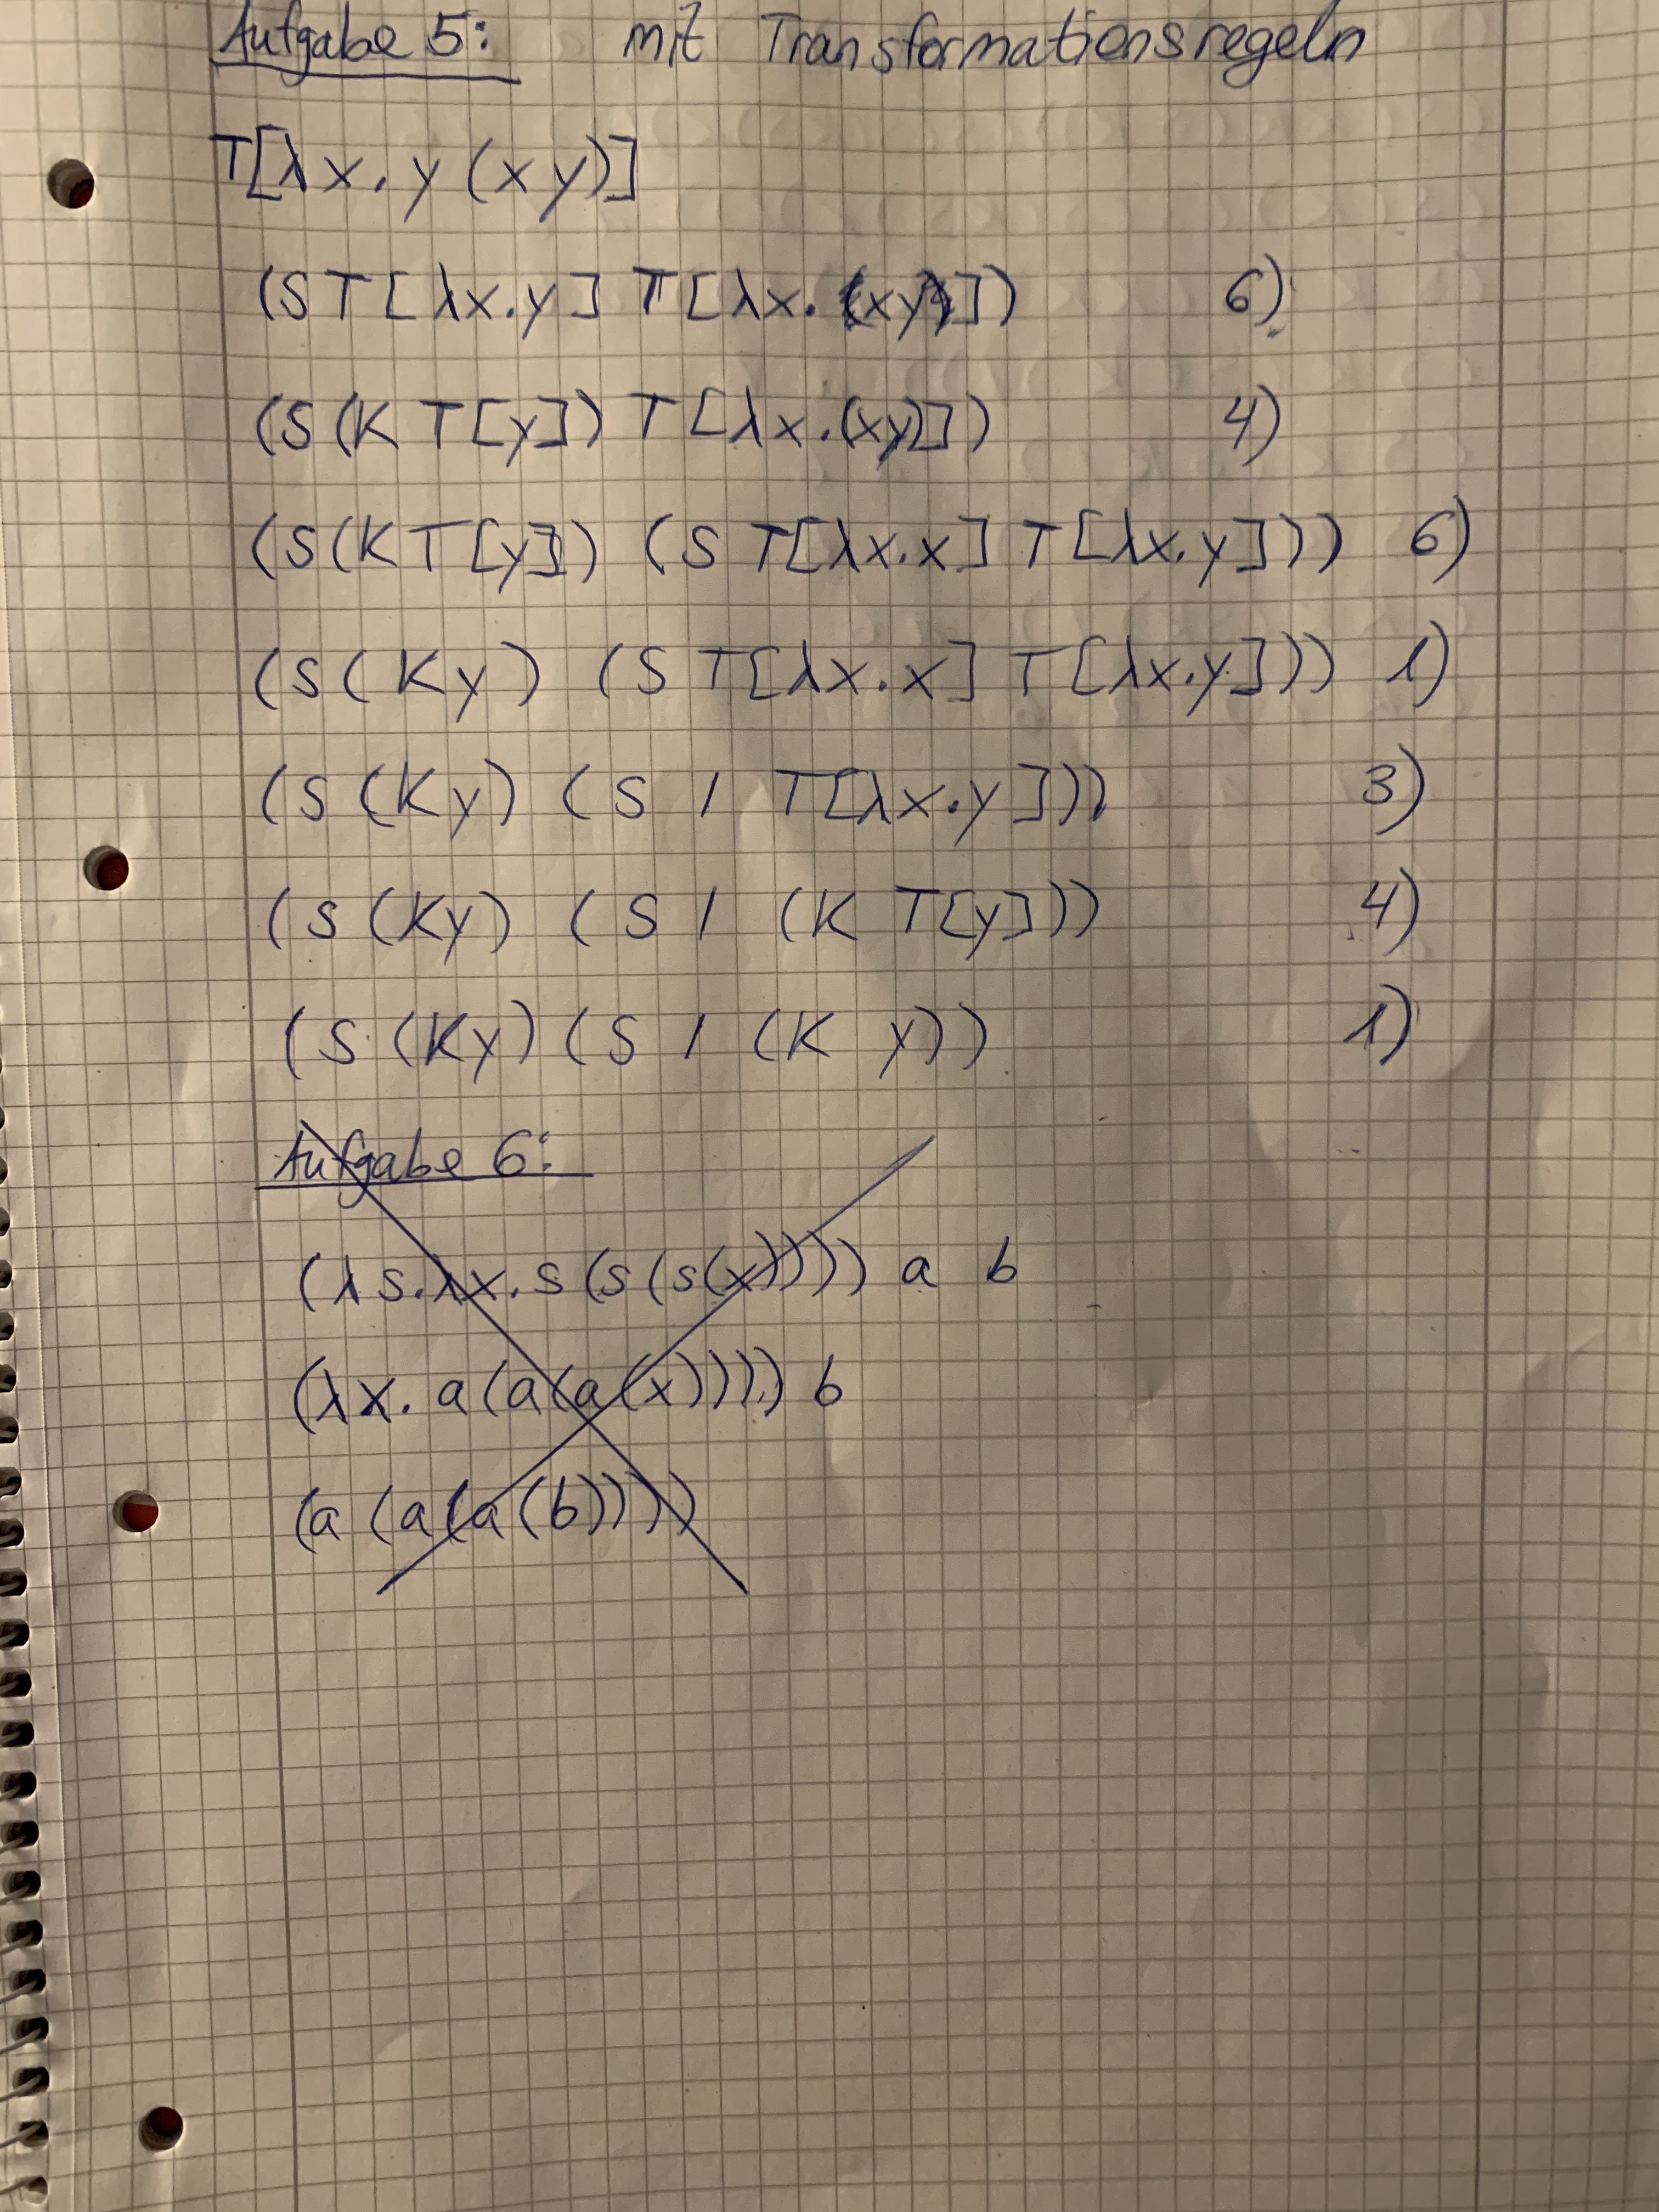 Aufgabe 5: mit Transformationsregeln
T[λx.y(xy)]
(ST[λx.y] T[λx.(xy)]) 6)
(S(KT[y]) T[λx.(xy)]) 4)
(S(KT[y]) (S T[λx.x] T[λx.y])) 6)
(S(Ky) (S T[λx.x] T[λx.y])) 1)
(S(Ky) (S I T[λx.y])) 3)
(S(Ky) (S I (K T[y])) 4)
(S(Ky)(S I (K y)) 1)
Aufgabe 6:
(λs.λx.s(s(s(x)))) a b
(λx.a(a(a(x)))) b
(a(a(a(b))))